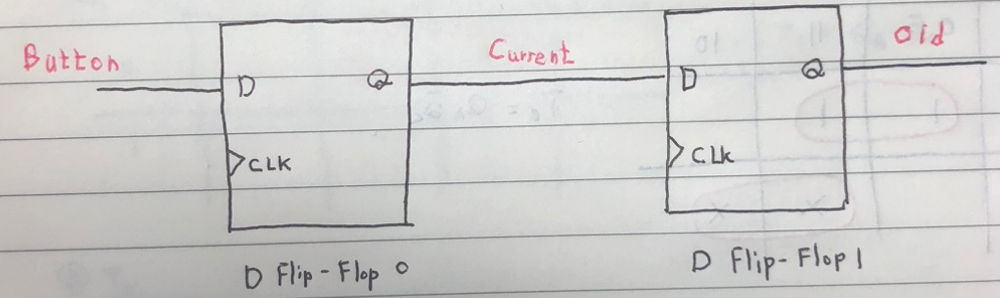 Button
Current
old
D
Q
D
Q
CLK
CLK
D Flip-Flop 0
D Flip-Flop 1